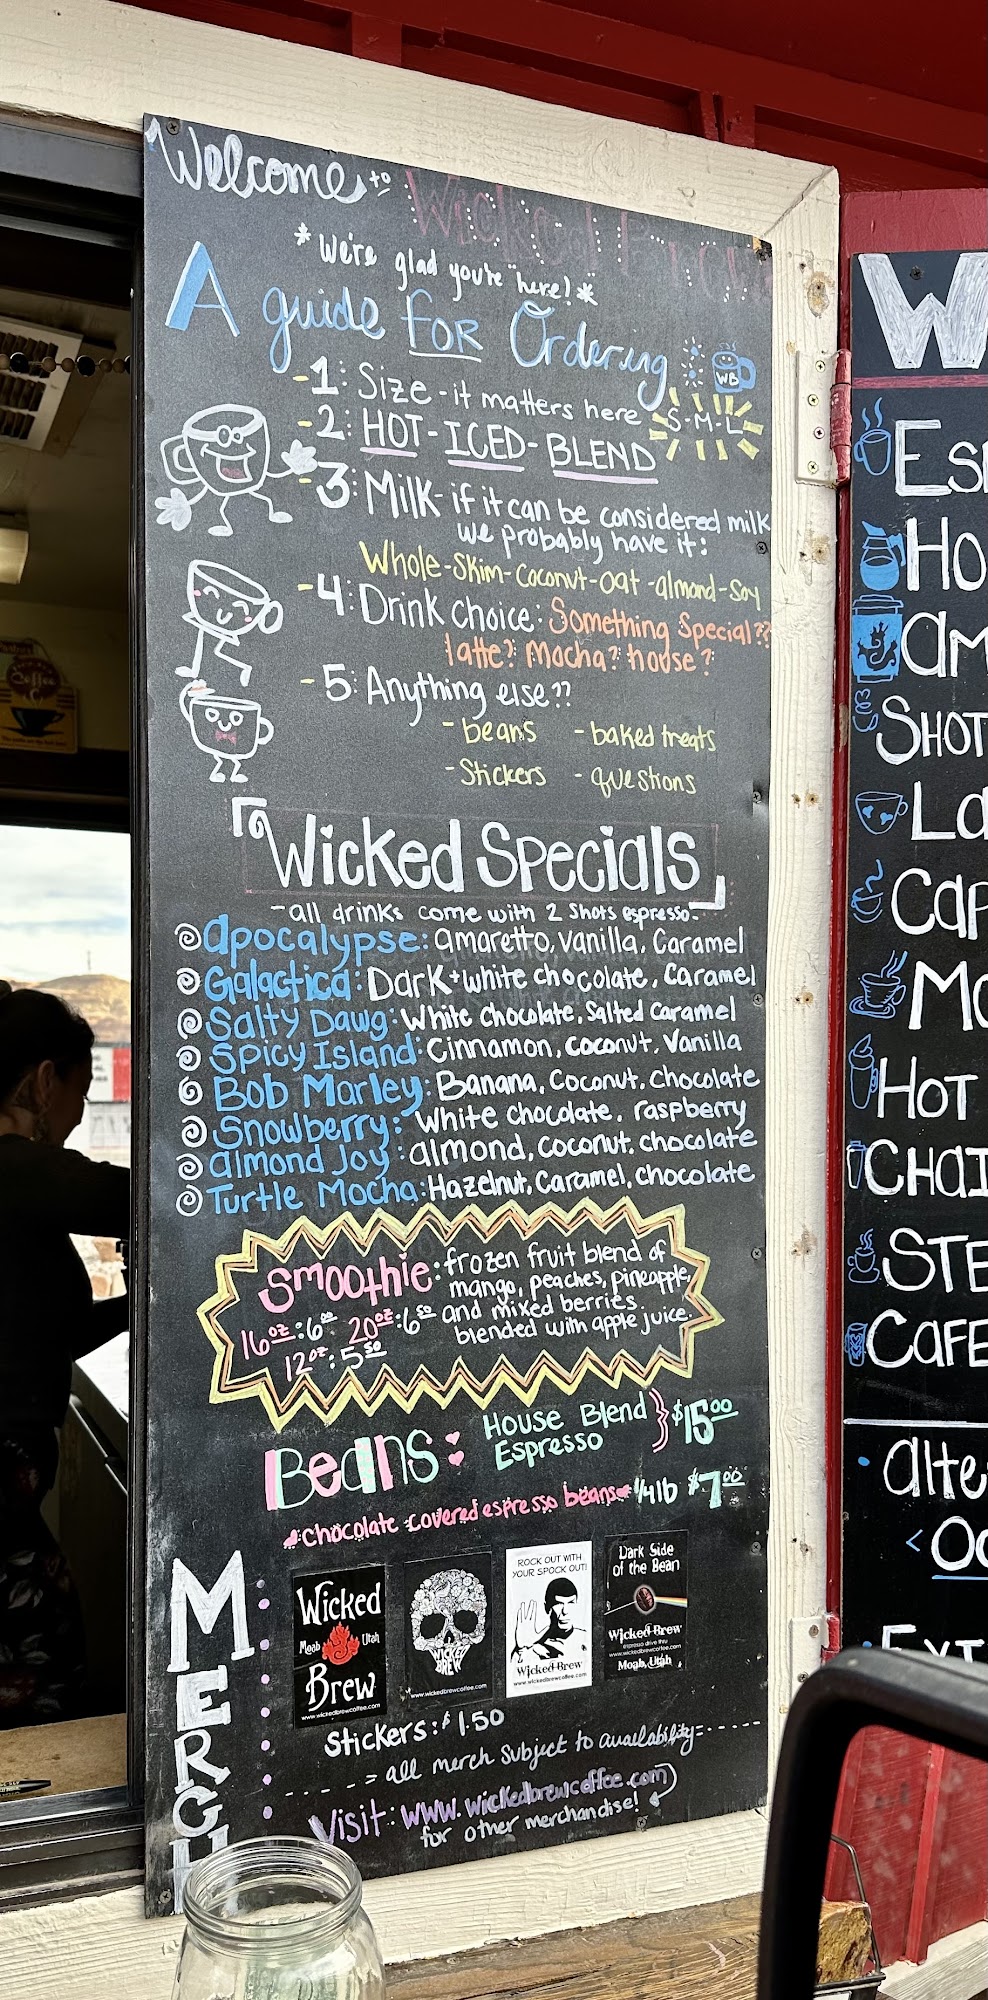 Welcome to Wicked Brew
*We're glad you're here!*
A guide FOR Ordering
WB
-1: Size - it matters here S-M-L
-2: HOT-ICED-BLEND
-3: Milk- if it can be considered milk
we probably have it:
Whole-Skim-Coconut-oat-almond-soy
-4: Drink choice: Something Special??
latte? Mocha? house?
-5: Anything else??
-beans -baked treats
-Stickers -questions
Wicked Specials
-all drinks come with 2 shots espresso-
Apocalypse: amaretto, vanilla, Caramel
Galactica: Dark+white chocolate, Caramel
Salty Dawg: White chocolate, Salted caramel
Spicy Island: Cinnamon, coconut, Vanilla
Bob Marley: Banana, Coconut, Chocolate
Snowberry: White chocolate, raspberry
Almond Joy: almond, coconut, chocolate
Turtle Mocha: Hazelnut, Caramel, chocolate
Smoothie: frozen fruit blend of
mango, peaches, pineapple,
and mixed berries.
blended with apple juice.
16oz: 6.00 20oz: 6.50
12oz: 5.50
Beans: House Blend
Espresso } $15.00
chocolate covered espresso beans 1/4lb $7.00
MERCH
Wicked
Moab Utah
Brew
www.wickedbrewcoffee.com
WICKED
BREW
www.wickedbrewcoffee.com
ROCK OUT WITH
YOUR SPOCK OUT!
Wicked Brew
www.wickedbrewcoffee.com
Dark Side
of the Bean
Wicked Brew
espresso drive thru
www.wickedbrewcoffee.com
Moab, Utah
Stickers: $1.50
---= all merch subject to availability=----
Visit: www.wickedbrewcoffee.com
for other merchandise!
W
Esp
Ho
am
SHOT
La
Cap
Mo
HOT
CHAI
STE
CAFE
alte
<Oa
Ext
Coffee